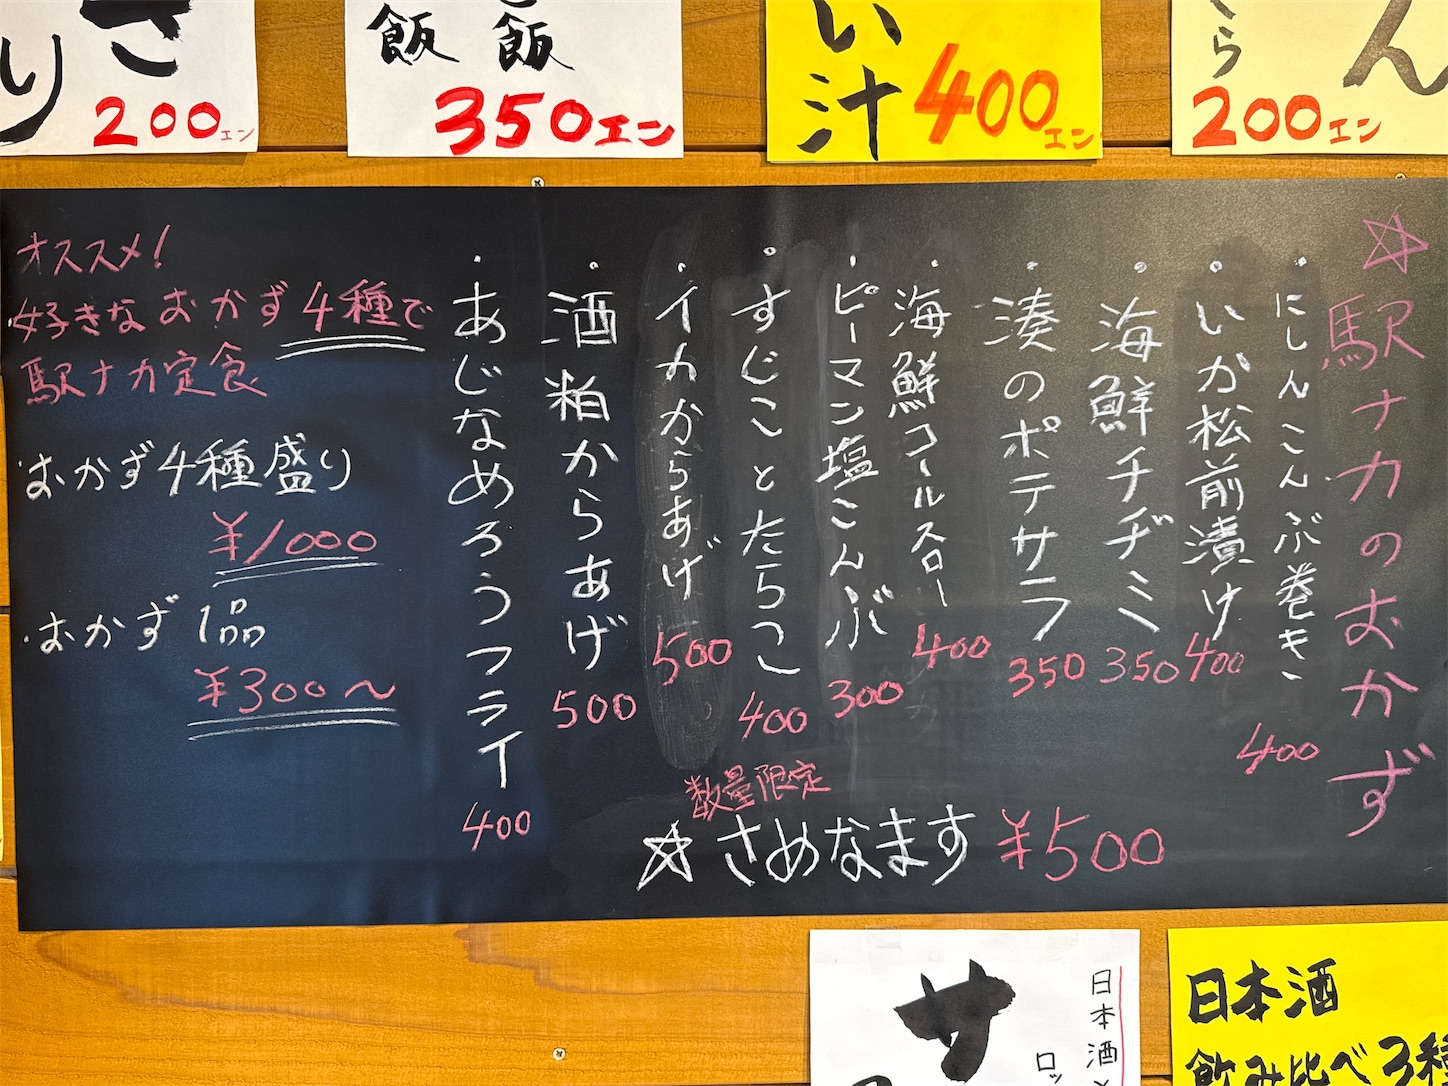 さ
り
200エン
飯
飯
350エン
い
汁
400エン
くら
ん
200エン
☆駅ナカのおかず
・にしんこんぶ巻き 400
・いか松前漬け 400
・海鮮チヂミ 350
・湊のポテサラ 350
・海鮮コールスロー 400
・ピーマン塩こんぶ 300
・すじことたらこ 400
・イカからあげ 500
・酒粕からあげ 500
・あじなめろうフライ 400
数量限定
☆さめなます ¥500
オススメ!
好きなおかず4種で
駅ナカ定食
おかず4種盛り
¥1000
・おかず1品
¥300〜
サ
日本酒
ロッ
日本酒
飲み比べ3種